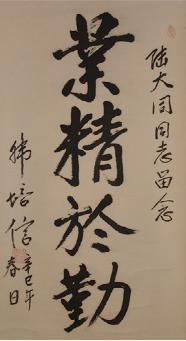 陆大同同志留念
业精於勤
韩培信
辛巳年
春日